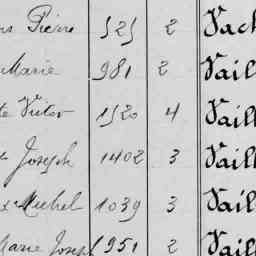 Pierre 525 2 Vach
Marie 981 2 Vaill
te Victor 1520 4 Vaill
x Joseph 1402 3 Vaill
x Michel 1039 3 Vaill
Marie Joseph 951 2 Vaill